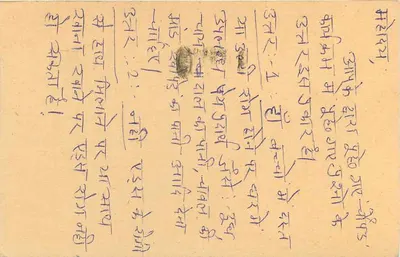 महाशय,
आपके द्वारा पूछे गए
कार्यक्रम में पूछे गए प्रश्नों के
उत्तर इस प्रकार है।
उत्तर : 1 हाँ बच्चों में दस्त
या उल्टी रोग होने पर घर में
उपलब्ध पेय पदार्थ जैसे : दूध
चाय दाल का पानी, चावल का
मांड का पानी देना
चाहिए।
उत्तर : 2 : नहीं एड्स के रोगी
से हाथ मिलाने पर या साथ
खाना खाने पर एड्स रोग नहीं
हो सकता है।